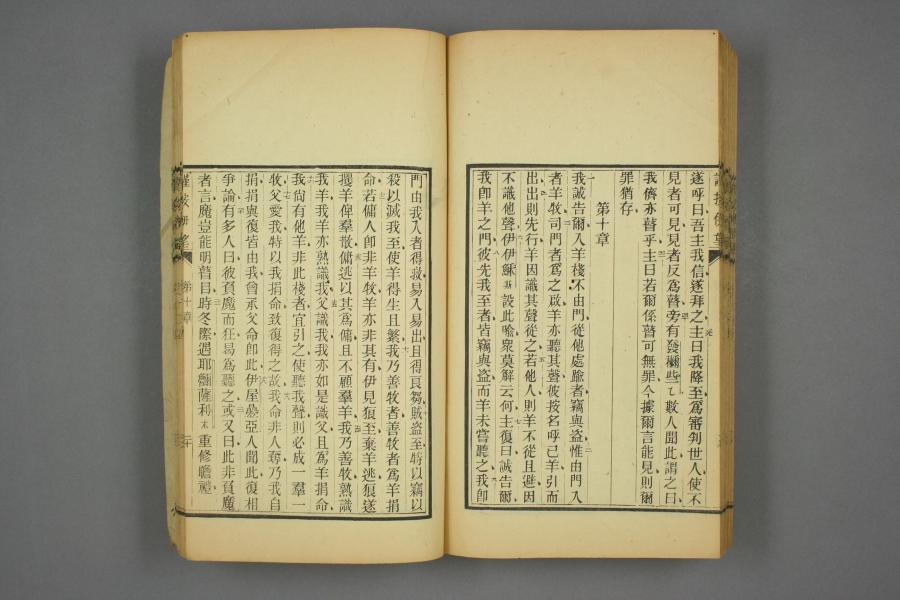 遂呼曰吾主我信遂拜之主曰我降至爲審判世人使不
見者可見見者反爲瞽旁有發㘔㘔數人聞此謂之曰
我儕亦瞽乎主曰若爾係瞽可無罪今據爾言能見則爾
罪猶存
第十章
我誠告爾入羊棧不由門從他處踰者竊與盜惟由門入
者羊牧司門者爲之啟羊亦聽其聲彼按名呼己羊引而
出出則先行羊因識其聲從之若他人則羊不從且避因
不識他聲伊伊穌斯設此喻衆莫解云何主復曰誠告爾
我卽羊之門彼先我至者皆竊與盜而羊未嘗聽之我卽
門由我入者得救易入易出且得良芻賊盜至特以竊以
殺以滅我至使羊得生且繁我乃善牧者善牧者爲羊捐
命若傭人卽非羊牧羊亦非其有伊見狼至棄羊逃狼遂
攫羊俾羣散傭逃以其爲傭且不顧羣羊我乃善牧熟識
我羊我羊亦熟識我父識我我亦如是識父且爲羊捐命
我尙有他羊非此棧者宜引之使聽我聲則必成一羣一
牧父愛我特以我捐命致復得之故我命非人奪乃我自
捐捐與復皆由我曾承父命卽此伊屋疊亞人聞此復相
爭論有多人曰彼負魔而狂曷爲聽之或又曰此非負魔
者言魔豈能明瞽目時冬際遇耶
薩利
重修瞻禮
第十章